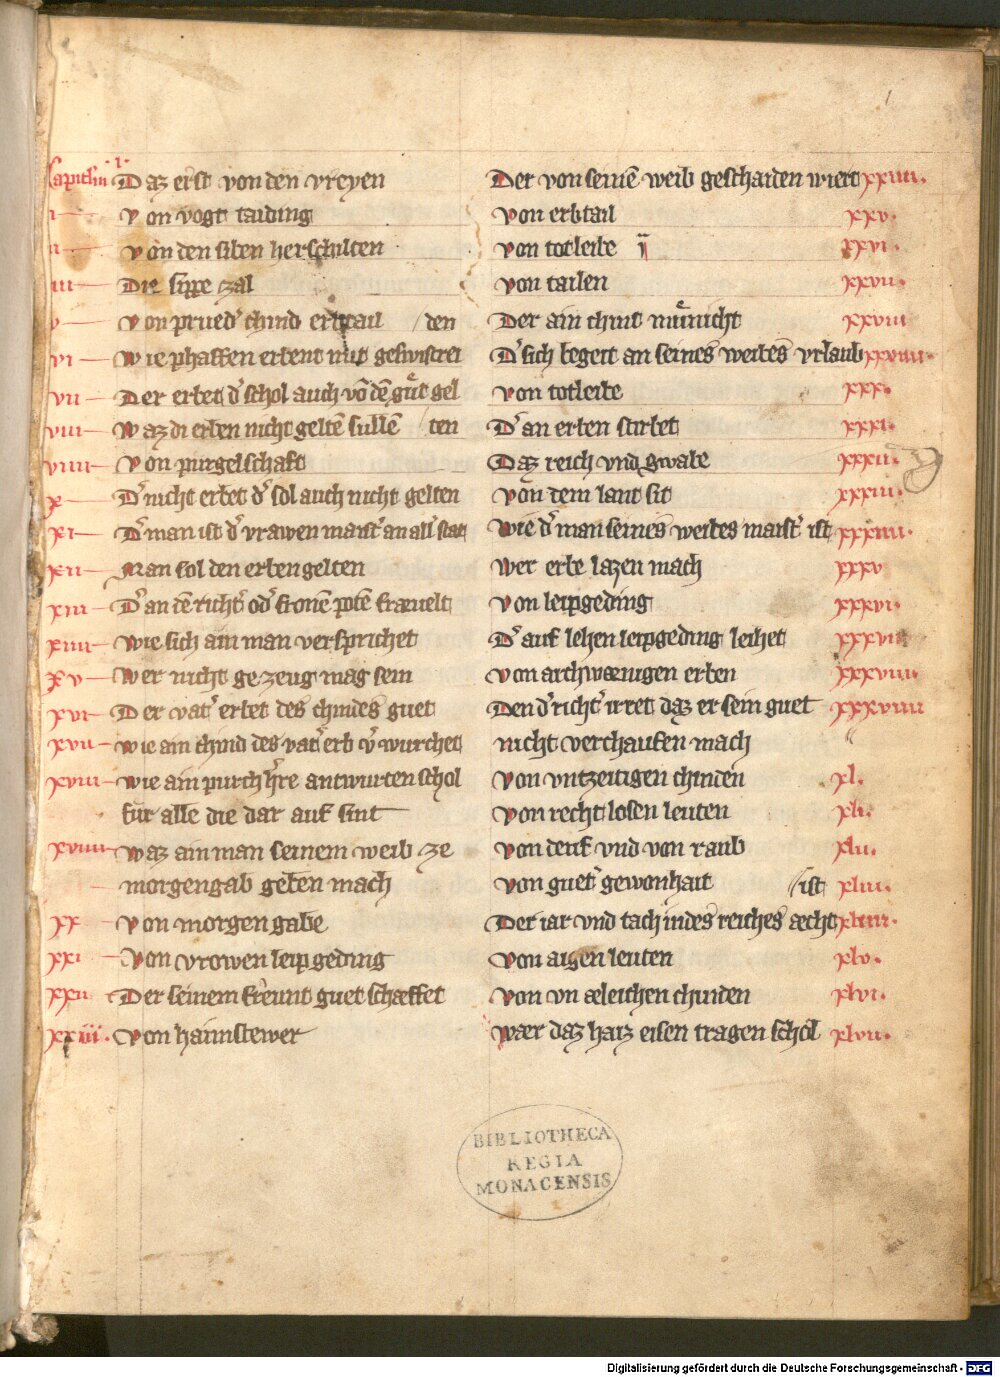 1
Capitlm ·1· Daz erst von den vreyen
i Von vogt taiding
ii Von den siben herschilten
iii Die sippe zal
v Von prued' chind erbtail / den
vi Wie phaffen erbent mit geswistrei
vii Der erbet d' schol auch vō dē gůt gel
viii Waz di erben nicht geltē sullē / ten
viiii Von purgelschaft
x D' nicht erbet d' sol auch nicht gelten
xi D' man ist d' vrawen maist' an all' stat
xii Man sol den erben gelten
xiii D' an dē richt' od' fronē potē frævelt
xiiii Wie sich ain man versprichet
xv Wer nicht gezeug mag sein
xvi Der vat' erbet des chindes guet
xvii Wie ain chind des vat' erb v'wurchet
xviii Wie ain purch h're antwurten schol
für alle die dar auf sint
xviiii Waz ain man seinem weib ze
morgengab geben mach
xx Von morgengabe
xxi Von vrowen leipgeding
xxii Der seinem freunt guet schæffet
xxiii. Von haimstewer
Der von seinē weib geschaiden wiert xxiiii.
Von erbtail xxv.
Von totleibe ii xxvi.
Von tailen xxvii.
Der ain chint nicht xxviii
D' sich begeit an seines weibes vrlaub xxviiii.
Von totleibe xxx.
D' an erben stirbet xxxi.
Daz reich vnd swabe xxxii.
Von dem lant sit xxxiii.
Wie d' man seines weibes maist' ist xxxiiii.
Wer erbe lazen mach xxxv
Von leipgeding xxxvi.
D' auf lehen leipgeding leihet xxxvii
Von archwænigen erben xxxviii.
Den d' richt' irret daz er sein guet xxxviiii
nicht verchaufen mach
Von vntzeitigen chinden xl.
Von rechtlosen leuten xli.
Von deuf vnd von raub xlii.
Von guet' gewonhait / ist xliii.
Der iar vnd tach in des reiches æcht xliiii.
Von aigen leuten xlv.
Von vn æleichen chinden xlvi.
Wær daz haiz eisen tragen schol xlvii.
BIBLIOTHECA
REGIA
MONACENSIS
Digitalisierung gefördert durch die Deutsche Forschungsgemeinschaft - DFG